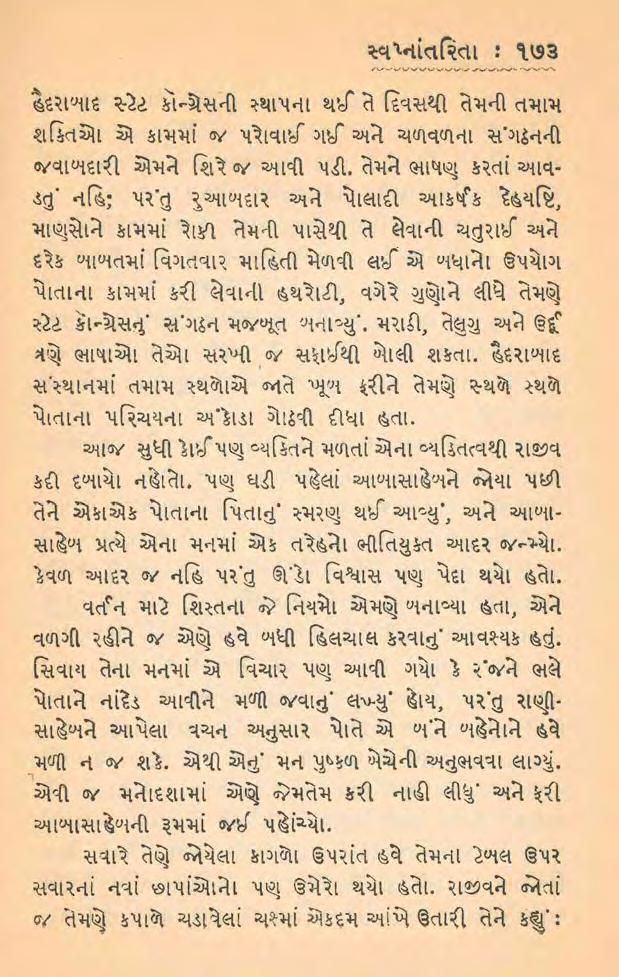 સ્વપ્નાંતરિતા : ૧૭૩
હૈદરાબાદ સ્ટેટ કૉન્ગ્રેસની સ્થાપના થઈ તે દિવસથી તેમની તમામ
શક્તિઓ એ કામમાં જ પરોવાઈ ગઈ અને ચળવળના સંગઠનની
જવાબદારી એમને શિરે જ આવી પડી. તેમને ભાષણ કરતાં આવ-
ડતું નહિ; પરંતુ રુઆબદાર અને પોલાદી આકર્ષક દેહયષ્ટિ,
માણસોને કામમાં રોકી તેમની પાસેથી તે લેવાની ચતુરાઈ અને
દરેક બાબતમાં વિગતવાર માહિતી મેળવી લઈ એ બધાનો ઉપયોગ
પોતાના કામમાં કરી લેવાની હથરોટી, વગેરે ગુણોને લીધે તેમણે
સ્ટેટ કૉન્ગ્રેસનું સંગઠન મજબૂત બનાવ્યું. મરાઠી, તેલુગુ અને ઉર્દૂ
ત્રણે ભાષાઓ તેઓ સરખી જ સફાઈથી બોલી શકતા. હૈદરાબાદ
સંસ્થાનમાં તમામ સ્થળોએ જાતે ખૂબ ફરીને તેમણે સ્થળે સ્થળે
પોતાના પરિચયના અંકોડા ગોઠવી દીધા હતા.
આજ સુધી કોઈ પણ વ્યક્તિને મળતાં એના વ્યક્તિત્વથી રાજીવ
કદી દબાયો નહોતો. પણ ઘડી પહેલાં આબાસાહેબને જોયા પછી
તેને એકાએક પોતાના પિતાનું સ્મરણ થઈ આવ્યું, અને આબા-
સાહેબ પ્રત્યે એના મનમાં એક તરેહનો ભીતિયુક્ત આદર જન્મ્યો.
કેવળ આદર જ નહિ પરંતુ ઊંડો વિશ્વાસ પણ પેદા થયો હતો.
વર્તન માટે શિસ્તના જે નિયમો એમણે બનાવ્યા હતા, એને
વળગી રહીને જ એણે હવે બધી હિલચાલ કરવાનું આવશ્યક હતું.
સિવાય તેના મનમાં એ વિચાર પણ આવી ગયો કે રંજને ભલે
પોતાને નાંદેડ આવીને મળી જવાનું લખ્યું હોય, પરંતુ રાણી-
સાહેબને આપેલા વચન અનુસાર પોતે એ બંને બહેનોને હવે
મળી ન જ શકે. એથી એનું મન પુષ્કળ બેચેની અનુભવવા લાગ્યું.
એવી જ મનોદશામાં એણે જેમતેમ કરી નાહી લીધું અને ફરી
આબાસાહેબની રૂમમાં જઈ પહોંચ્યો.
સવારે તેણે જોયેલા કાગળો ઉપરાંત હવે તેમના ટેબલ ઉપર
સવારનાં નવાં છાપાંઓનો પણ ઉમેરો થયો હતો. રાજીવને જોતાં
જ તેમણે કપાળે ચડાવેલાં ચશ્માં એકદમ આંખે ઉતારી તેને કહ્યું :